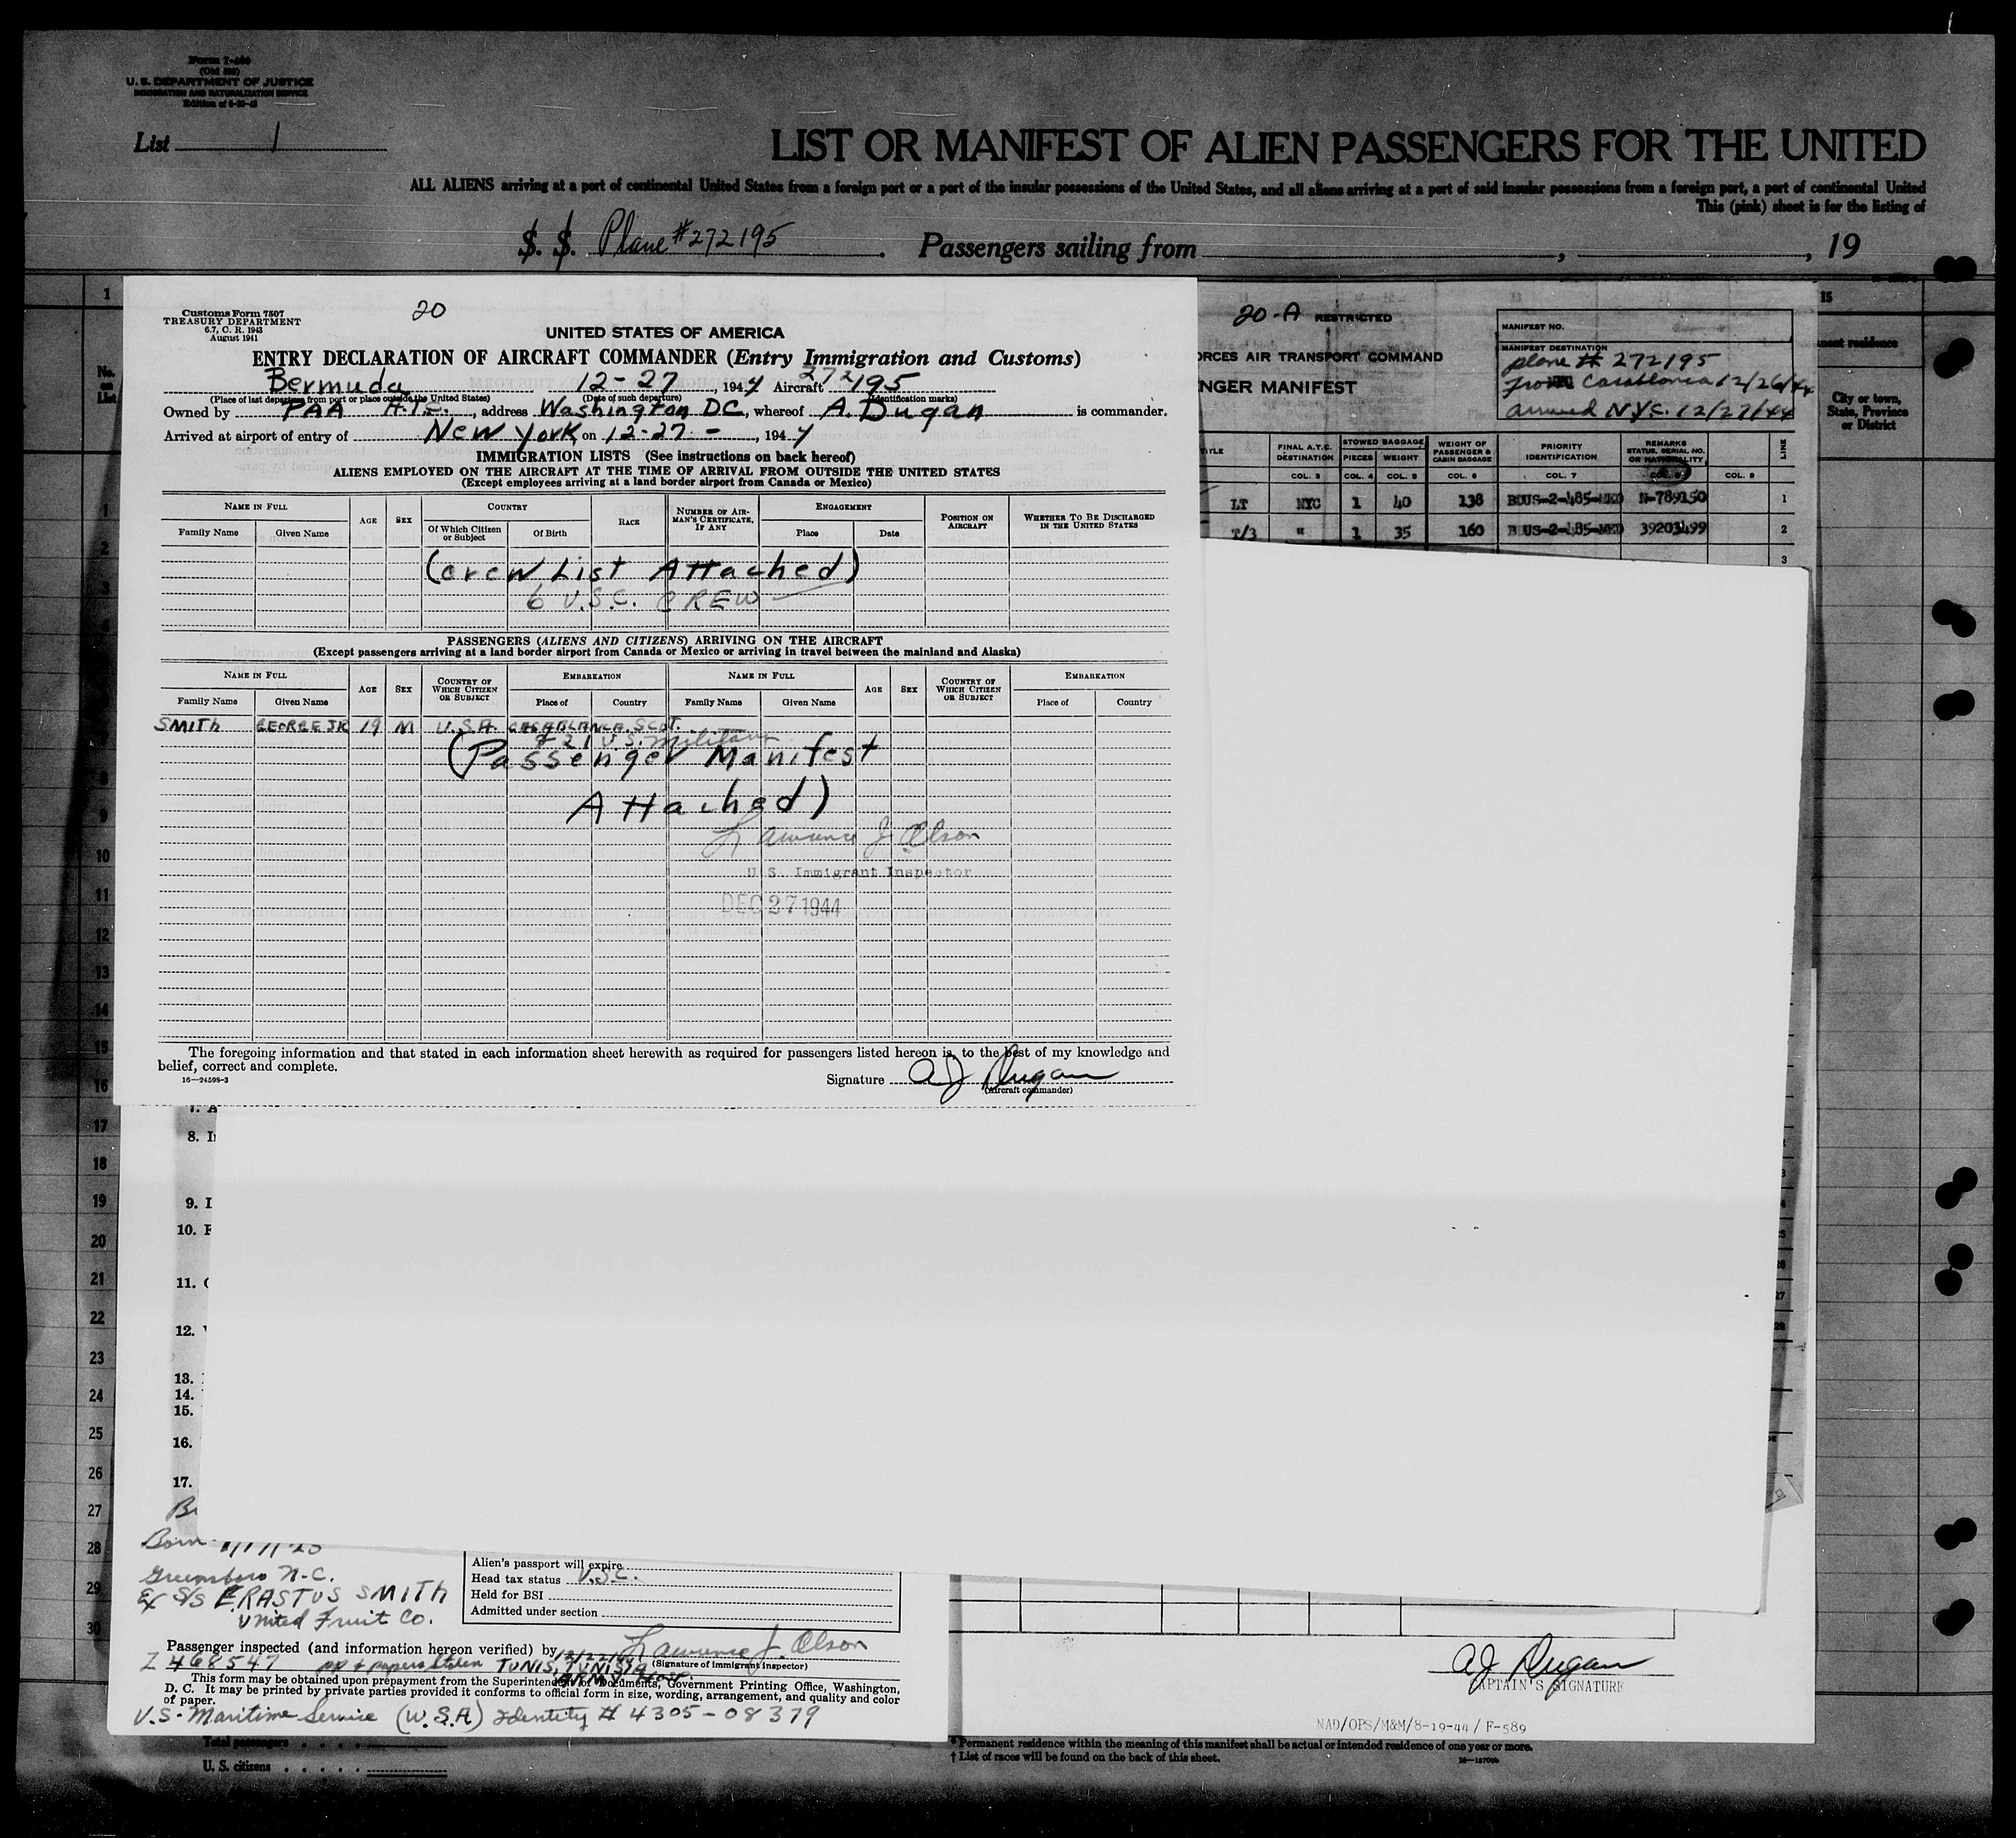 Form I-466
(Old 500)
U. S. DEPARTMENT OF JUSTICE
IMMIGRATION AND NATURALIZATION SERVICE
List 1
LIST OR MANIFEST OF ALIEN PASSENGERS FOR THE UNITED
ALL ALIENS arriving at a port of continental United States from a foreign port or a port of the insular possessions of the United States, and all aliens arriving at a port of said insular possessions from a foreign port, a port of continental United
This (pink) sheet is for the listing of
S. S. Plane #272195. Passengers sailing from , , 19
Customs Form 7507
TREASURY DEPARTMENT
6.7, C. R. 1943
August 1941
20
UNITED STATES OF AMERICA
ENTRY DECLARATION OF AIRCRAFT COMMANDER (Entry Immigration and Customs)
Bermuda 12-27, 1944 Aircraft 272195
(Place of last departure from port or place outside the United States) (Date of such departure) (Identification marks)
Owned by PAA A.T.C., address Washington DC, whereof A. Dugan is commander.
Arrived at airport of entry of New York on 12-27-, 1944
IMMIGRATION LISTS (See instructions on back hereof)
ALIENS EMPLOYED ON THE AIRCRAFT AT THE TIME OF ARRIVAL FROM OUTSIDE THE UNITED STATES
(Except employees arriving at a land border airport from Canada or Mexico)
NAME IN FULL AGE SEX COUNTRY RACE NUMBER OF AIRMAN'S CERTIFICATE, IF ANY ENGAGEMENT POSITION ON AIRCRAFT WHETHER TO BE DISCHARGED IN THE UNITED STATES
Family Name Given Name Of Which Citizen or Subject Of Birth Place Date
(Crew List Attached)
6 U.S.C. CREW
PASSENGERS (ALIENS AND CITIZENS) ARRIVING ON THE AIRCRAFT
(Except passengers arriving at a land border airport from Canada or Mexico or arriving in travel between the mainland and Alaska)
NAME IN FULL AGE SEX COUNTRY OF WHICH CITIZEN OR SUBJECT EMBARKATION NAME IN FULL AGE SEX COUNTRY OF WHICH CITIZEN OR SUBJECT EMBARKATION
Family Name Given Name Place of Country Family Name Given Name Place of Country
SMITH GEORGE JR 19 M U.S.A. CASABLANCA
21 U.S. Military
(Passenger Manifest
Attached)
Lawrence J Olson
U.S. Immigrant Inspector
DEC 27 1944
The foregoing information and that stated in each information sheet herewith as required for passengers listed hereon is, to the best of my knowledge and
belief, correct and complete.
16—24598-3
Signature A J Dugan
(Aircraft commander)
20-A RESTRICTED
ORCES AIR TRANSPORT COMMAND
NGER MANIFEST
MANIFEST NO.
MANIFEST DESTINATION
plane # 272195
From Casablanca 12/26/44
arrived N.Y.C. 12/27/44
TITLE FINAL A.T.C. DESTINATION STOWED BAGGAGE PIECES WEIGHT WEIGHT OF PASSENGER & CABIN BAGGAGE PRIORITY IDENTIFICATION REMARKS STATUS, SERIAL NO. OR NATIONALITY LINE
COL. 3 COL. 4 COL. 5 COL. 6 COL. 7 COL. 8 COL. 9
LT NYC 1 40 138 BDUS-2-485-MED N-789150 1
T/3 " 1 35 160 B US-2-485-MED 39203499 2
3
15
nent residence
City or town,
State, Province
or District
No. on List
1
2
3
4
7
8
9
10
11
12
13
14
15
16
17
18
19
20
21
22
23
24
25
26
27
28
29
30
7. A
8. I
9. I
10. F
11. (
12.
13.
14.
15.
16.
17.
Born
Greensboro N.C.
Ex S/S ERASTUS SMITH
United Fruit Co.
Alien's passport will expire
Head tax status U.S.C.
Held for BSI
Admitted under section
Passenger inspected (and information hereon verified) by Lawrence J. Olson
(Signature of immigrant inspector)
Z 468547 pp & papers stolen TUNIS, TUNISIA
This form may be obtained upon prepayment from the Superintendent of Documents, Government Printing Office, Washington,
D. C. It may be printed by private parties provided it conforms to official form in size, wording, arrangement, and quality and color
of paper.
U.S. Maritime Service (W.S.A) Identity # 4305-08379
Total passengers
U. S. citizens
A J Dugan
CAPTAIN'S SIGNATURE
NAD/OPS/M&M/8-19-44/F-589
* Permanent residence within the meaning of this manifest shall be actual or intended residence of one year or more.
† List of races will be found on the back of this sheet.